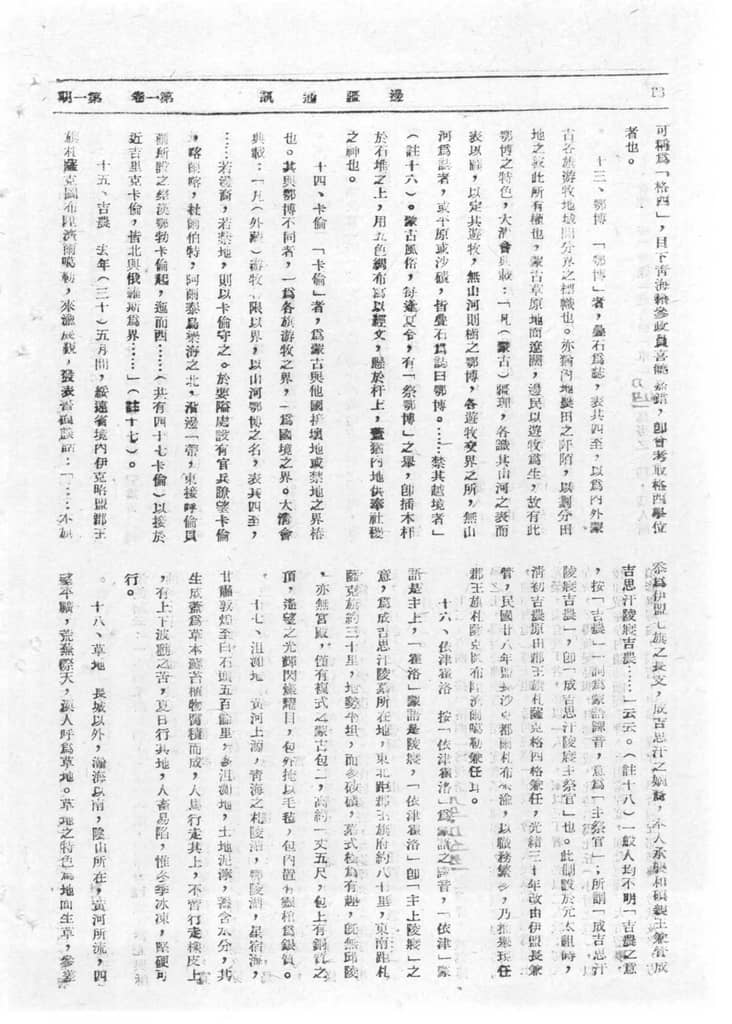 13
邊疆通訊
第一卷 第一期
可稱爲「格西」，目下青海籍參政員喜饒嘉錯，即曾考取格西學位
者也。
十三、鄂博 「鄂博」者，疊石爲誌，表其四至，以爲內外蒙
古各旗游牧地域間分界之標幟也。亦猶內地農田之阡陌，以劃分田
地之界此所有權也，蒙古草原地面遼闊，邊民以遊牧爲生，故有此
鄂博之特色，大淸會典載：「凡（蒙古）疆理，各識其山河之表而
表以圖，以定其遊牧，無山河則樹之鄂博，各遊牧交界之所，無山
河爲誌者，或平原或沙磧，皆疊石爲誌曰鄂博。……禁其越境者」
（註十六）。蒙古風俗，每逢夏令，有「祭鄂博」之舉，即插木杆
於石堆之上，用九色綢布寫以經文，懸於杆上，蓋猶內地供奉社稷
之神也。
十四、卡倫 「卡倫」者，爲蒙古與他國接壤地或禁地之界樁
也。其與鄂博不同者，一爲各旗游牧之界，一爲國境之界。大淸會
典載：「凡（外蒙）游牧有限以界，以山河鄂博之名，表其四至，
……若漠裔，若禁地，則以卡倫守之。於要隘處設有官兵瞭望卡倫
，喀爾喀，杜爾伯特，阿爾泰烏梁海之北，沿邊一帶，東接呼倫貝
爾所設之祭漠鄂勃卡倫起，迤而四……（共有四十七卡倫）以接於
近吉里克卡倫，皆北與俄羅斯爲界……」（註十七）。
十五、吉農 去年（三十）五月間，綏遠省境內伊克昭盟郡王
旗札薩克圖布陞濟爾噶勒，來渝展觀，發表書面談話：「……本旗
忝爲伊盟七旗之長支，成吉思汗之嫡裔，本人承襲和碩親王兼管成
吉思汗陵寢吉農……」云云。（註十八）一般人均不明「吉農」之意
，按「吉農」一詞爲蒙語譯音，意爲「主祭官」；所謂「成吉思汗
陵寢吉農」，即「成吉思汗陵寢主祭官」也。此制設於元太祖時，
淸初吉農原由郡王旗札薩克格四格兼任，光緒三十年改由伊盟長兼
管，民國廿八年盟長沙克都爾札布來渝，以職務繁多，乃推舉現任
郡王旗札薩克圖布陞濟爾噶勒兼任耳。
十六、依津霍洛 按「依津霍洛」爲蒙語之譯音，「依津」蒙
語是主上，「霍洛」蒙語是陵寢，「依津霍洛」即「主上陵寢」之
意，爲成吉思汗陵墓所在地，東北距郡王旗府約八十里，東南距札
薩克旗約三十里，地勢平坦，而多砂磧，墓式極爲有趣，旣無邱陵
，亦無宮殿，僅有複式之蒙古包二，高約一丈五尺，包上有銅質之
頂，遙望之光輝閃爍耀目，包外掩以毛毡，包內置有銀棺爲銀質。
十七、沮洳地 黃河上源，青海之札陵泊，鄂陵湖，星宿海，
甘肅敦煌至白石頭五百餘里，多沮洳地，土地泥濘，蓄含水分，共
生成蓋爲草本蘇苔植物腐積而成，人馬行走其上，不啻行走橡皮上
，有上下波動之苦，夏日行其地，人畜易陷，惟冬季冰凍，堅硬可
行。
十八、草地 長城以外，瀚海以南，陰山所在，黃河所流，四
望平曠，荒蕪際天，漢人呼爲草地。草地之特色爲地面生草，參差